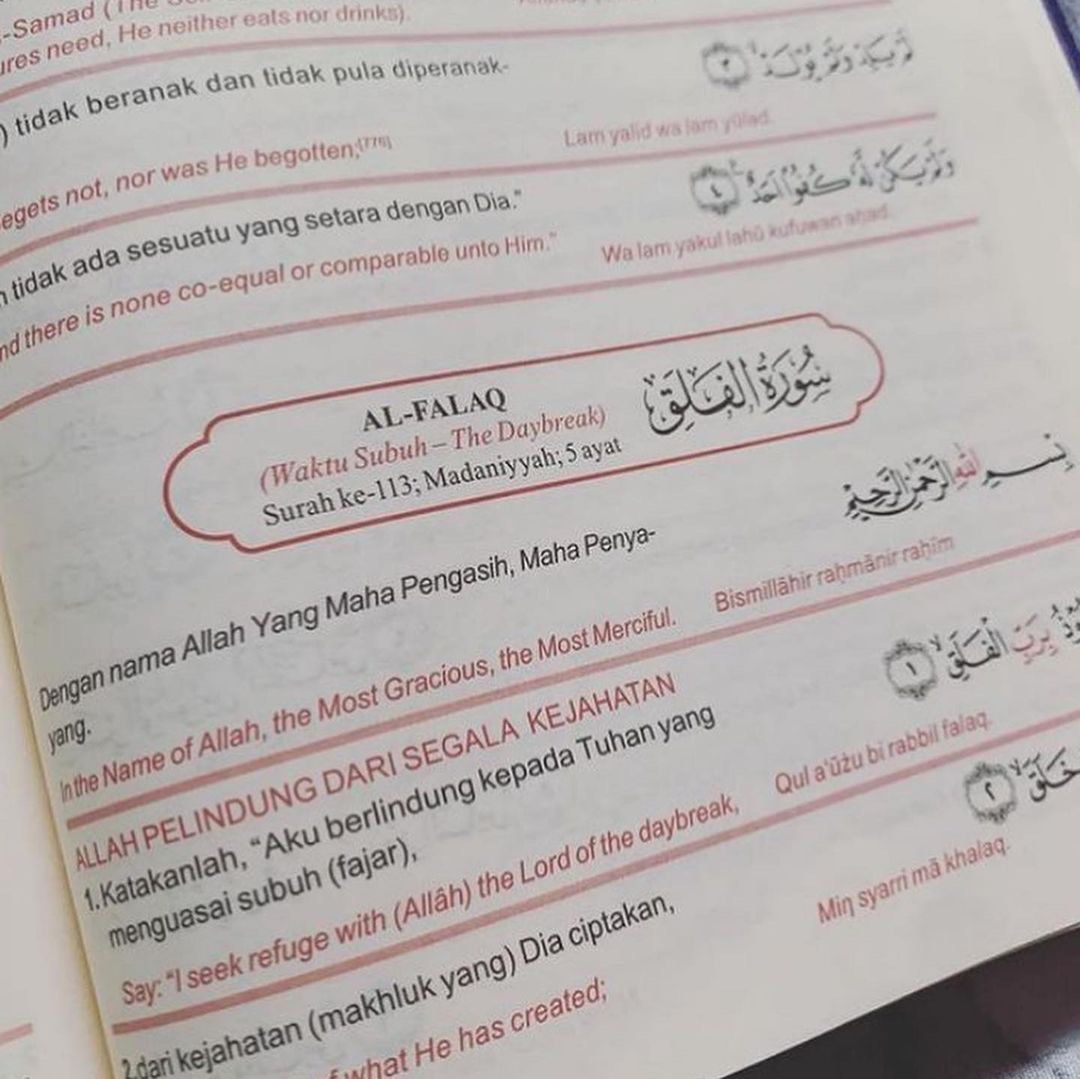 -Samad (The
ures need, He neither eats nor drinks).
) tidak beranak dan tidak pula diperanak-
لَمْ يَلِدْ وَلَمْ يُولَدْ ۙ ٣
egets not, nor was He begotten;[776]
Lam yalid wa lam yūlad.
tidak ada sesuatu yang setara dengan Dia."
وَلَمْ يَكُنْ لَهُ كُفُوًا أَحَدٌ ٤
nd there is none co-equal or comparable unto Him."
Wa lam yakul lahū kufuwan aḥad.
AL-FALAQ
(Waktu Subuh – The Daybreak)
Surah ke-113; Madaniyyah; 5 ayat
سُوْرَةُ الْفَلَقِ
بِسْمِ اللَّهِ الرَّحْمَٰنِ الرَّحِيمِ
Dengan nama Allah Yang Maha Pengasih, Maha Penya-
yang.
In the Name of Allah, the Most Gracious, the Most Merciful.
Bismillāhir raḥmānir raḥīm
ALLAH PELINDUNG DARI SEGALA KEJAHATAN
1.Katakanlah, "Aku berlindung kepada Tuhan yang
menguasai subuh (fajar),
بِرَبِّ الْفَلَقِ ۙ ١
Say: "I seek refuge with (Allâh) the Lord of the daybreak,
Qul a'ūżu bi rabbil falaq.
2.dari kejahatan (makhluk yang) Dia ciptakan,
خَلَقَ ۙ ٢
f what He has created;
Miŋ syarri mā khalaq.